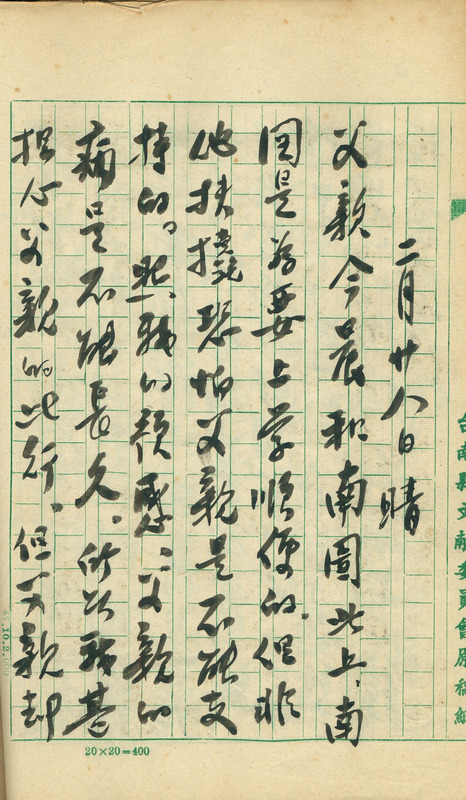 二月廿八日 晴
父親今晨和南圖北上、南
圖是為要上学順便的。但非
他扶撓恐怕父親是不能支
持的。照我的预感、父親的
病是不能長久、所以我甚
担心父親的此行、但父親却
台南縣文献委員會原稿紙
20×20=400